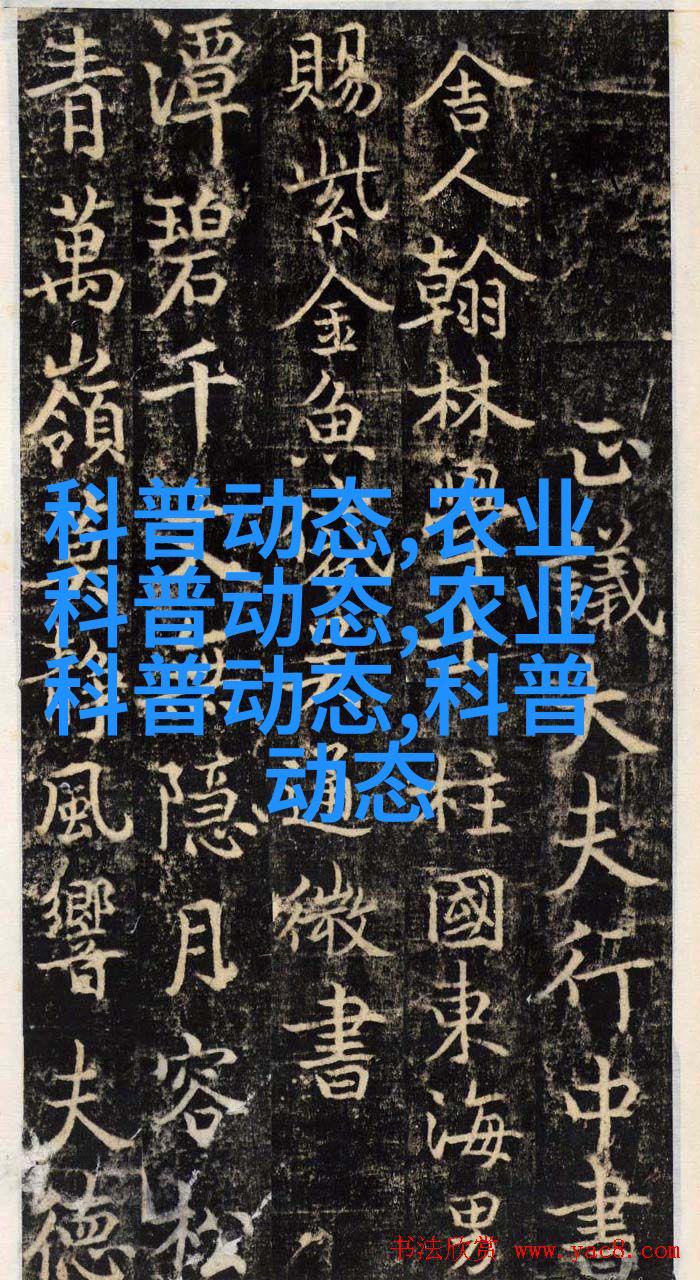 正議大夫行中書
舍人翰林學士柱國東海男
賜紫金魚通微書
潭碧千隱月容松
青萬嶺靜風響夫德
科普动态,农业
科普动态,农业
科普动态,科普
动态
书法欣赏 www.yac8.com